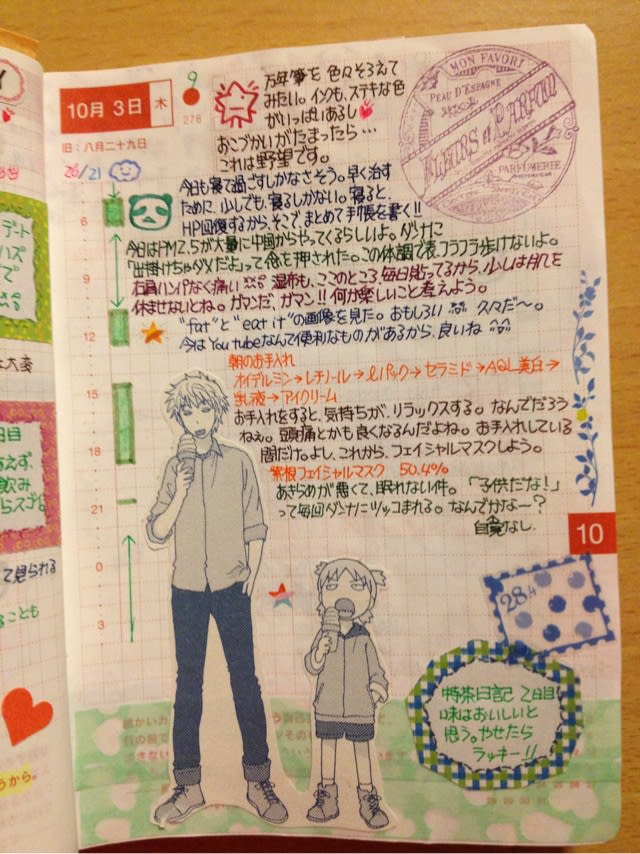 10月 3日 木
276
旧：八月二十九日
26/21
9
万年筆を 色々そろえて
みたい。インクも、ステキな色
がいっぱいあるし
おこづかいがたまったら…
これは野望です。
MON FAVORI
PEAU D'ESPAGNE
FLEURS et PARFUM
PARFUMERIE
今日も寝て過すしかなさそう。早く治す
ために、少しでも、寝るしかない。寝ると、
HP回復するから、そこで、まとめて手帳を書く!!
今日はPM2.5が大量に中国からやってくるらしいよ。ダンナに
「出掛けちゃダメだよ」って念を押された。この体調で表、フラフラ歩けないよ。
右肩ハンパなく痛い 湿布も、ここのところ、毎日貼ってるから、少しは肌を
休ませないとね。ガマンだ、ガマン!! 何か楽しいこと考えよう。
"fat"と"eat it"の画像を見た。おもしろい 久々だ〜。
今はYou tubeなんて便利なものがあるから、良いね
朝のお手入れ
オイデルミン→レチノール→ℓパック→セラミド→AQL美白→
乳液→アイクリーム
お手入れをすると、気持ちが、リラックスする。なんでだろう
ねぇ。頭痛とかも良くなるんだよね。お手入れしている
間だけ。よし、これから、フェイシャルマスクしよう。
紫根フェイシャルマスク 50.4%
あきらめが悪くて、眠れない件。「子供だな!」
って毎回ダンナにツッコまれる。なんでかな〜?
自覚なし.
6
9
12
15
18
21
0
3
10
28H
特茶日記 2日目
味はおいしいと
思う。やせたら
ラッキー!!
デート
ハズ
で
大変
日目
えず、
飲み
らスゴ。
て見られる
ることも
うから。